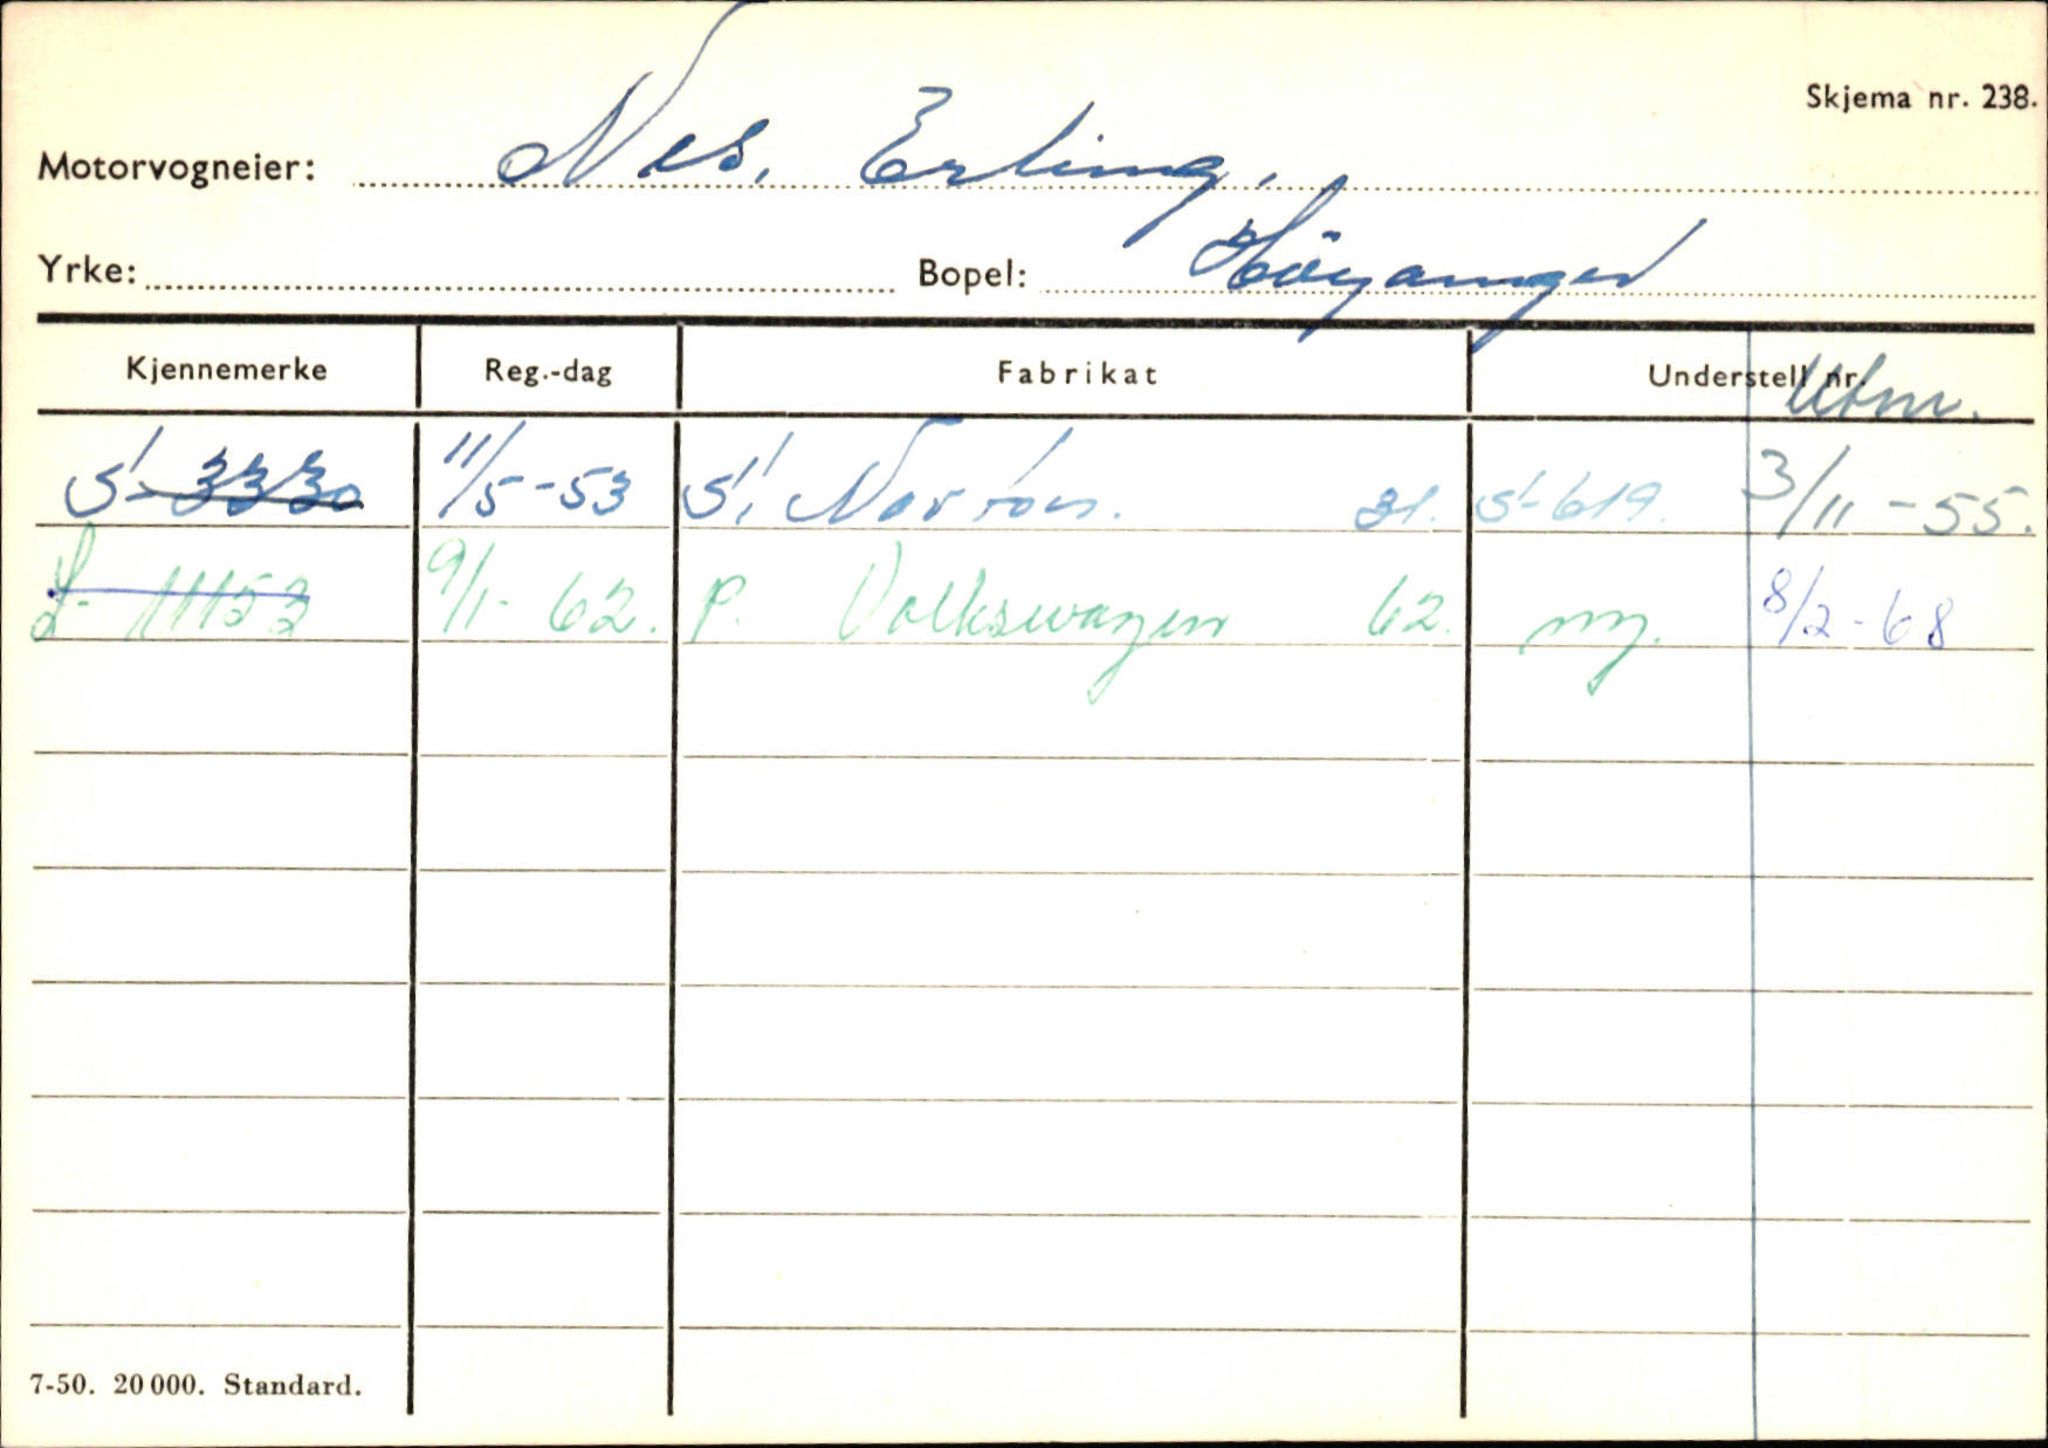 Skjema nr. 238.
Motorvogneier: Nes, Erling,
Yrke: Bopel: Höyanger
Kjennemerke Reg.-dag Fabrikat Understell nr. Utm.
S-3330 11/5-53 S, Norton. 31. S-619. 3/11-55.
S-11153 9/1-62. P. Volkswagen 62. ny. 8/2-68
7-50. 20 000. Standard.